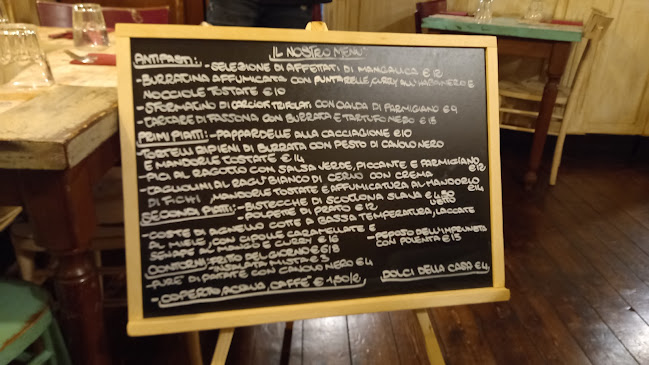 IL NOSTRO MENU'
ANTIPASTI: - SELEZIONE DI AFFETTATI DI MANGALICA € 12
- BURRATINA AFFUMICATA CON PUNTARELLE, CURRY ALL'HABANERO E
NOCCIOLE TOSTATE € 10
- SFORMATINO DI CARCIOFI TRIFOLATI CON CIALDA DI PARMIGIANO € 9
- TARTARE DI FASSONA CON BURRATA E TARTUFO NERO € 15
PRIMI PIATTI: - PAPPARDELLE ALLA CACCIAGIONE € 10
- TORTELLI RIPIENI DI BURRATA CON PESTO DI CAVOLO NERO
E MANDORLE TOSTATE € 14
- PICI AL RAGOTTO CON SALSA VERDE, PICCANTE E PARMIGIANO € 12
- TAGLIOLINI AL RAGU' BIANCO DI CERVO CON CREMA
DI FICHI, MANDORLE TOSTATE E AFFUMICATURA AL MANDORLO € 14
SECONDI PIATTI: - BISTECCHE DI SCOTTONA SLAVA € 4,50
L'ETTO
- POLPETTE DI PRATO € 12
- COSTE DI AGNELLO COTTE A BASSA TEMPERATURA, LACCATE
AL MIELE, CON CIPOLLE CARAMELLATE E
SENAPE AL MANGO E CURRY € 16
- PEPOSO DELL'IMPRUNETA
CON POLENTA € 15
CONTORNI: FRITTO DEL GIORNO €
- INSALATA MISTA € 3
- PURE' DI PATATE CON CAVOLO NERO € 4
- COPERTO, ACQUA, CAFFE' € 1,50/2
DOLCI DELLA CASA € 4